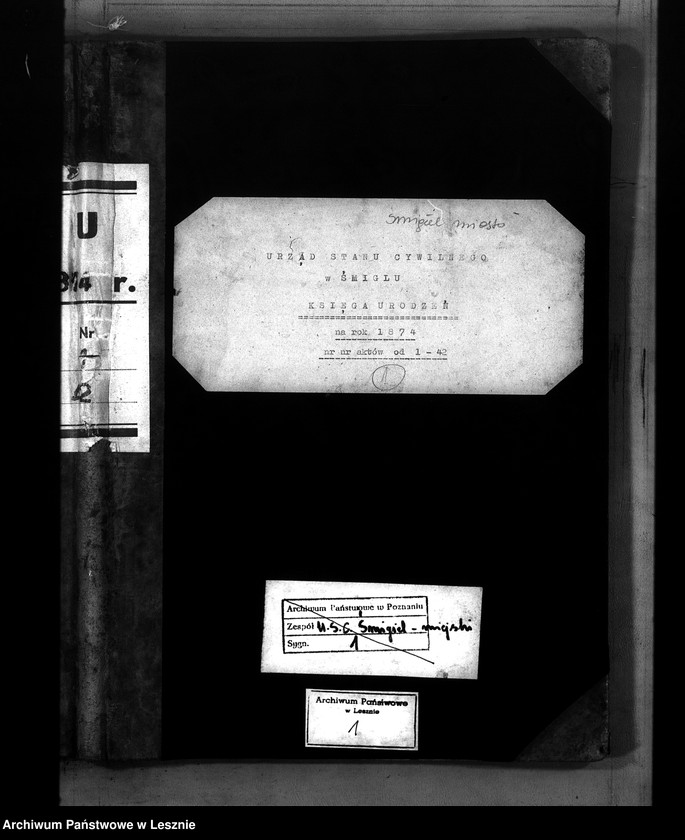 U
1874 r.
Nr
1
2
Śmigiel miasto
URZĄD STANU CYWILNEGO
w ŚMIGLU
KSIĘGA URODZEŃ
na rok 1874
nr nr aktów od 1 - 42
1
Archiwum Państwowe w Poznaniu
Zespół U.S.C. Śmigiel - miejski
Sygn. 1
Archiwum Państwowe
w Lesznie
1
Archiwum Państwowe w Lesznie